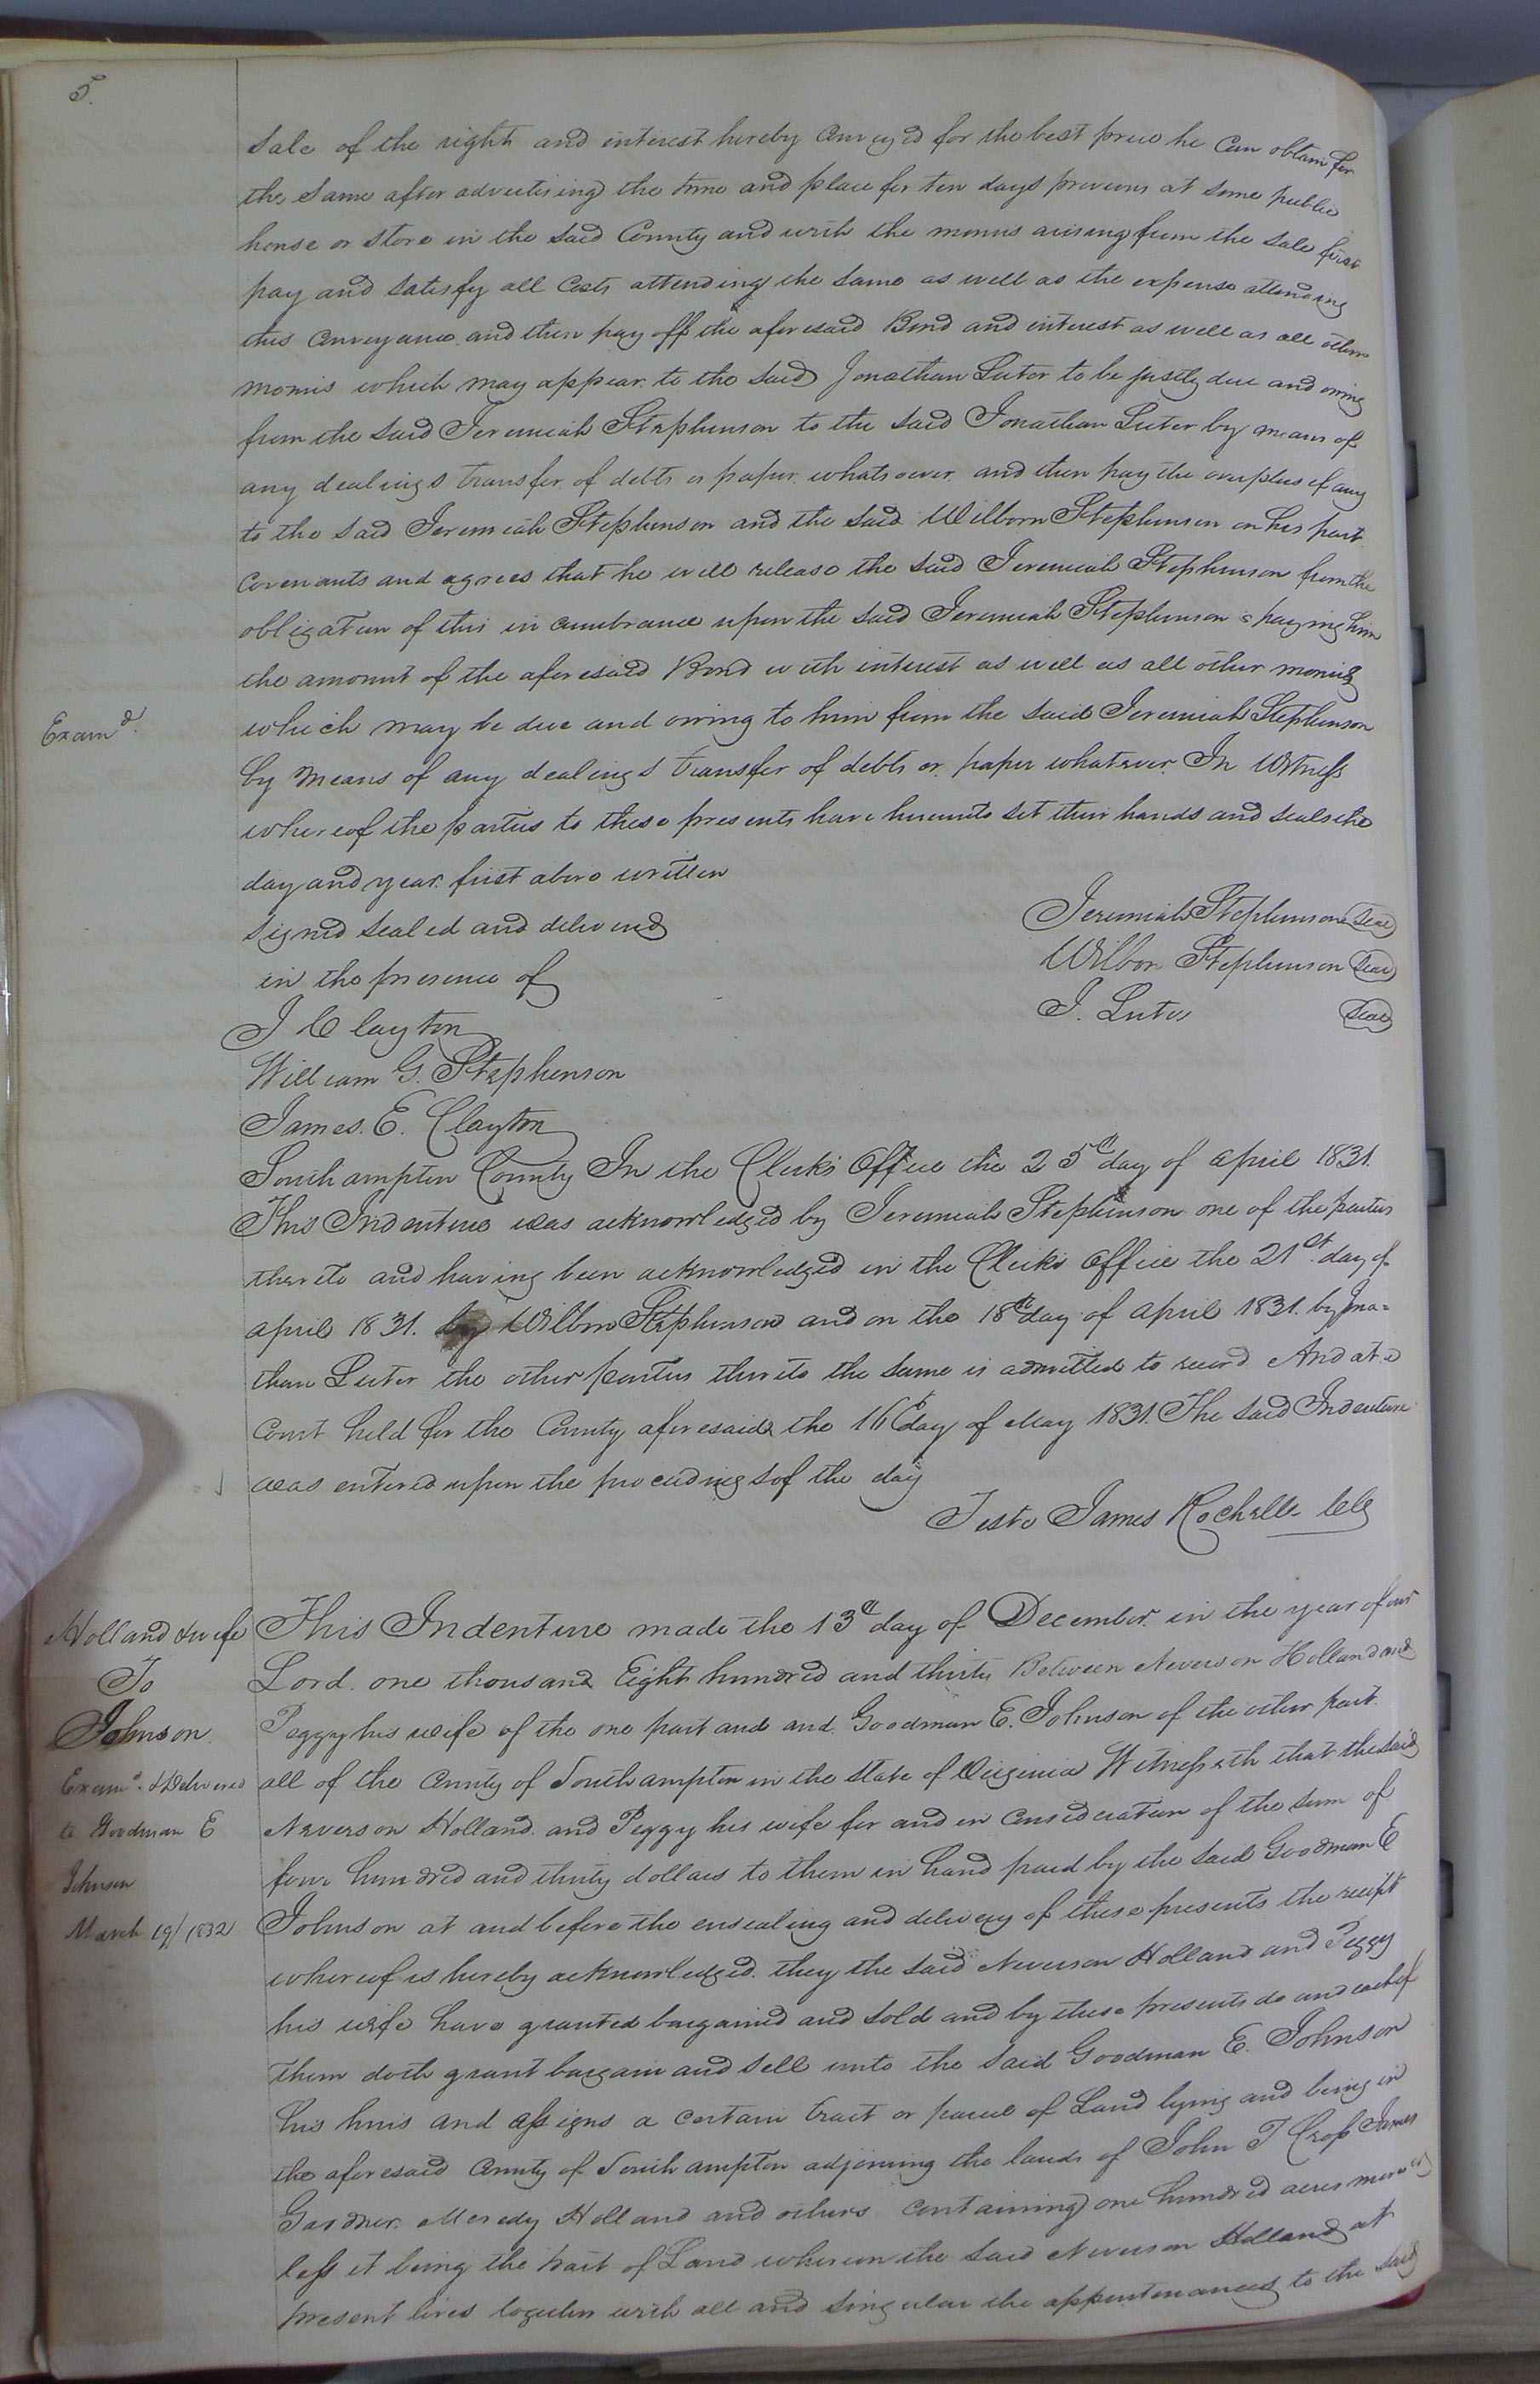 5.
Sale of the right and interest hereby Conveyed for the best price he Can obtain for
the Same after advertising the time and place for ten days previous at Some public
house or Store in the Said County and with the monies arising from the Sale first
pay and Satisfy all Costs attending the Same as well as the expense attending
this Conveyance and then pay off the aforesaid Bond and interest as well as all other
monies which may appear to the Said Jonathan Luter to be justly due and owing
from the Said Jeremiah Stephenson to the Said Jonathan Luter by means of
any dealings transfer of debts or paper whatsoever and then pay the overplus if any
to the Said Jeremiah Stephenson and the Said Wilborn Stephenson on his part
Covenants and agrees that he will release the Said Jeremiah Stephenson from the
obligation of this incumbrance upon the Said Jeremiah Stephenson s paying him
the amount of the aforesaid Bond with interest as well as all other monies
Examd.
which may be due and owing to him from the Said Jeremiah Stephenson
by means of any dealings transfer of debts or paper whatever. In Witness
whereof the parties to these presents have hereunto Set their hands and Seals the
day and year first above written
Signed Sealed and delivered
in the presence of
Jeremiah Stephenson Seal
Wilborn Stephenson Seal
J. Luter Seal
J Clayton
William G. Stephenson
James. E. Clayton
Southampton County In the Clerk's Office the 25th day of april 1831.
This Indenture was acknowledged by Jeremiah Stephenson one of the parties
thereto and having been acknowledged in the Clerks Office the 21st day of
april 1831. by Wilborn Stephenson and on the 18th day of april 1831. by Jona=
than Luter the other parties thereto the Same is admitted to record And at a
Court held for the County aforesaid the 16th day of May 1831. The Said Indenture
was entered upon the proceedings of the day
Teste James Rochelle Clk
Holland & wife
To
Johnson.
Examd. & Delivered
to Goodman E
Johnson
March 19/1832
This Indenture made the 13th day of December in the year of our
Lord. one thousand Eight hundred and thirty Between Neverson Holland and
Peggy his wife of the one part and and Goodman E. Johnson of the other part.
all of the County of Southampton in the State of Virginia Witnesseth that the Said
Neverson Holland. and Peggy his wife for and in Consideration of the Sum of
four hundred and thirty dollars to them in hand paid by the Said Goodman E
Johnson at and before the ensealing and delivery of these presents the receipt
whereof is hereby acknowledged. they the Said Neverson Holland and Peggy
his wife have granted bargained and Sold and by these presents do and each of
them doth grant bargain and Sell unto the Said Goodman E. Johnson
his heirs and assigns a Certain tract or parcel of Land lying and being in
the aforesaid County of Southampton adjoining the lands of John T Cross James
Gardner. Meredy Holland and others Containing one hundred acres more or
less it being the tract of Land whereon the Said Neverson Holland at
present lives together with all and Singular the appurtenances to the Said